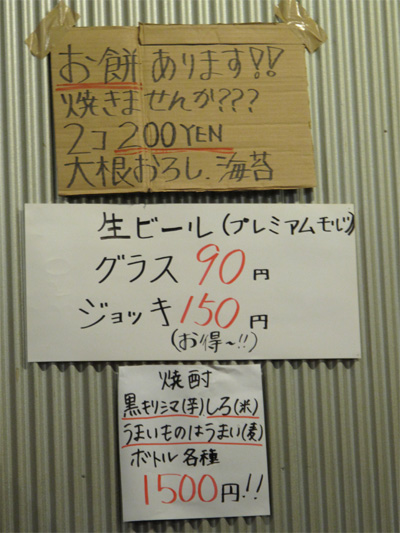 お餅あります!!
焼きませんか???
2コ 200YEN
大根おろし.海苔
生ビール(プレミアムモルツ)
グラス 90円
ジョッキ 150円
(お得〜!!)
焼酎
黒キリシマ(芋)しろ(米)
うまいものはうまい(麦)
ボトル各種
1500円!!